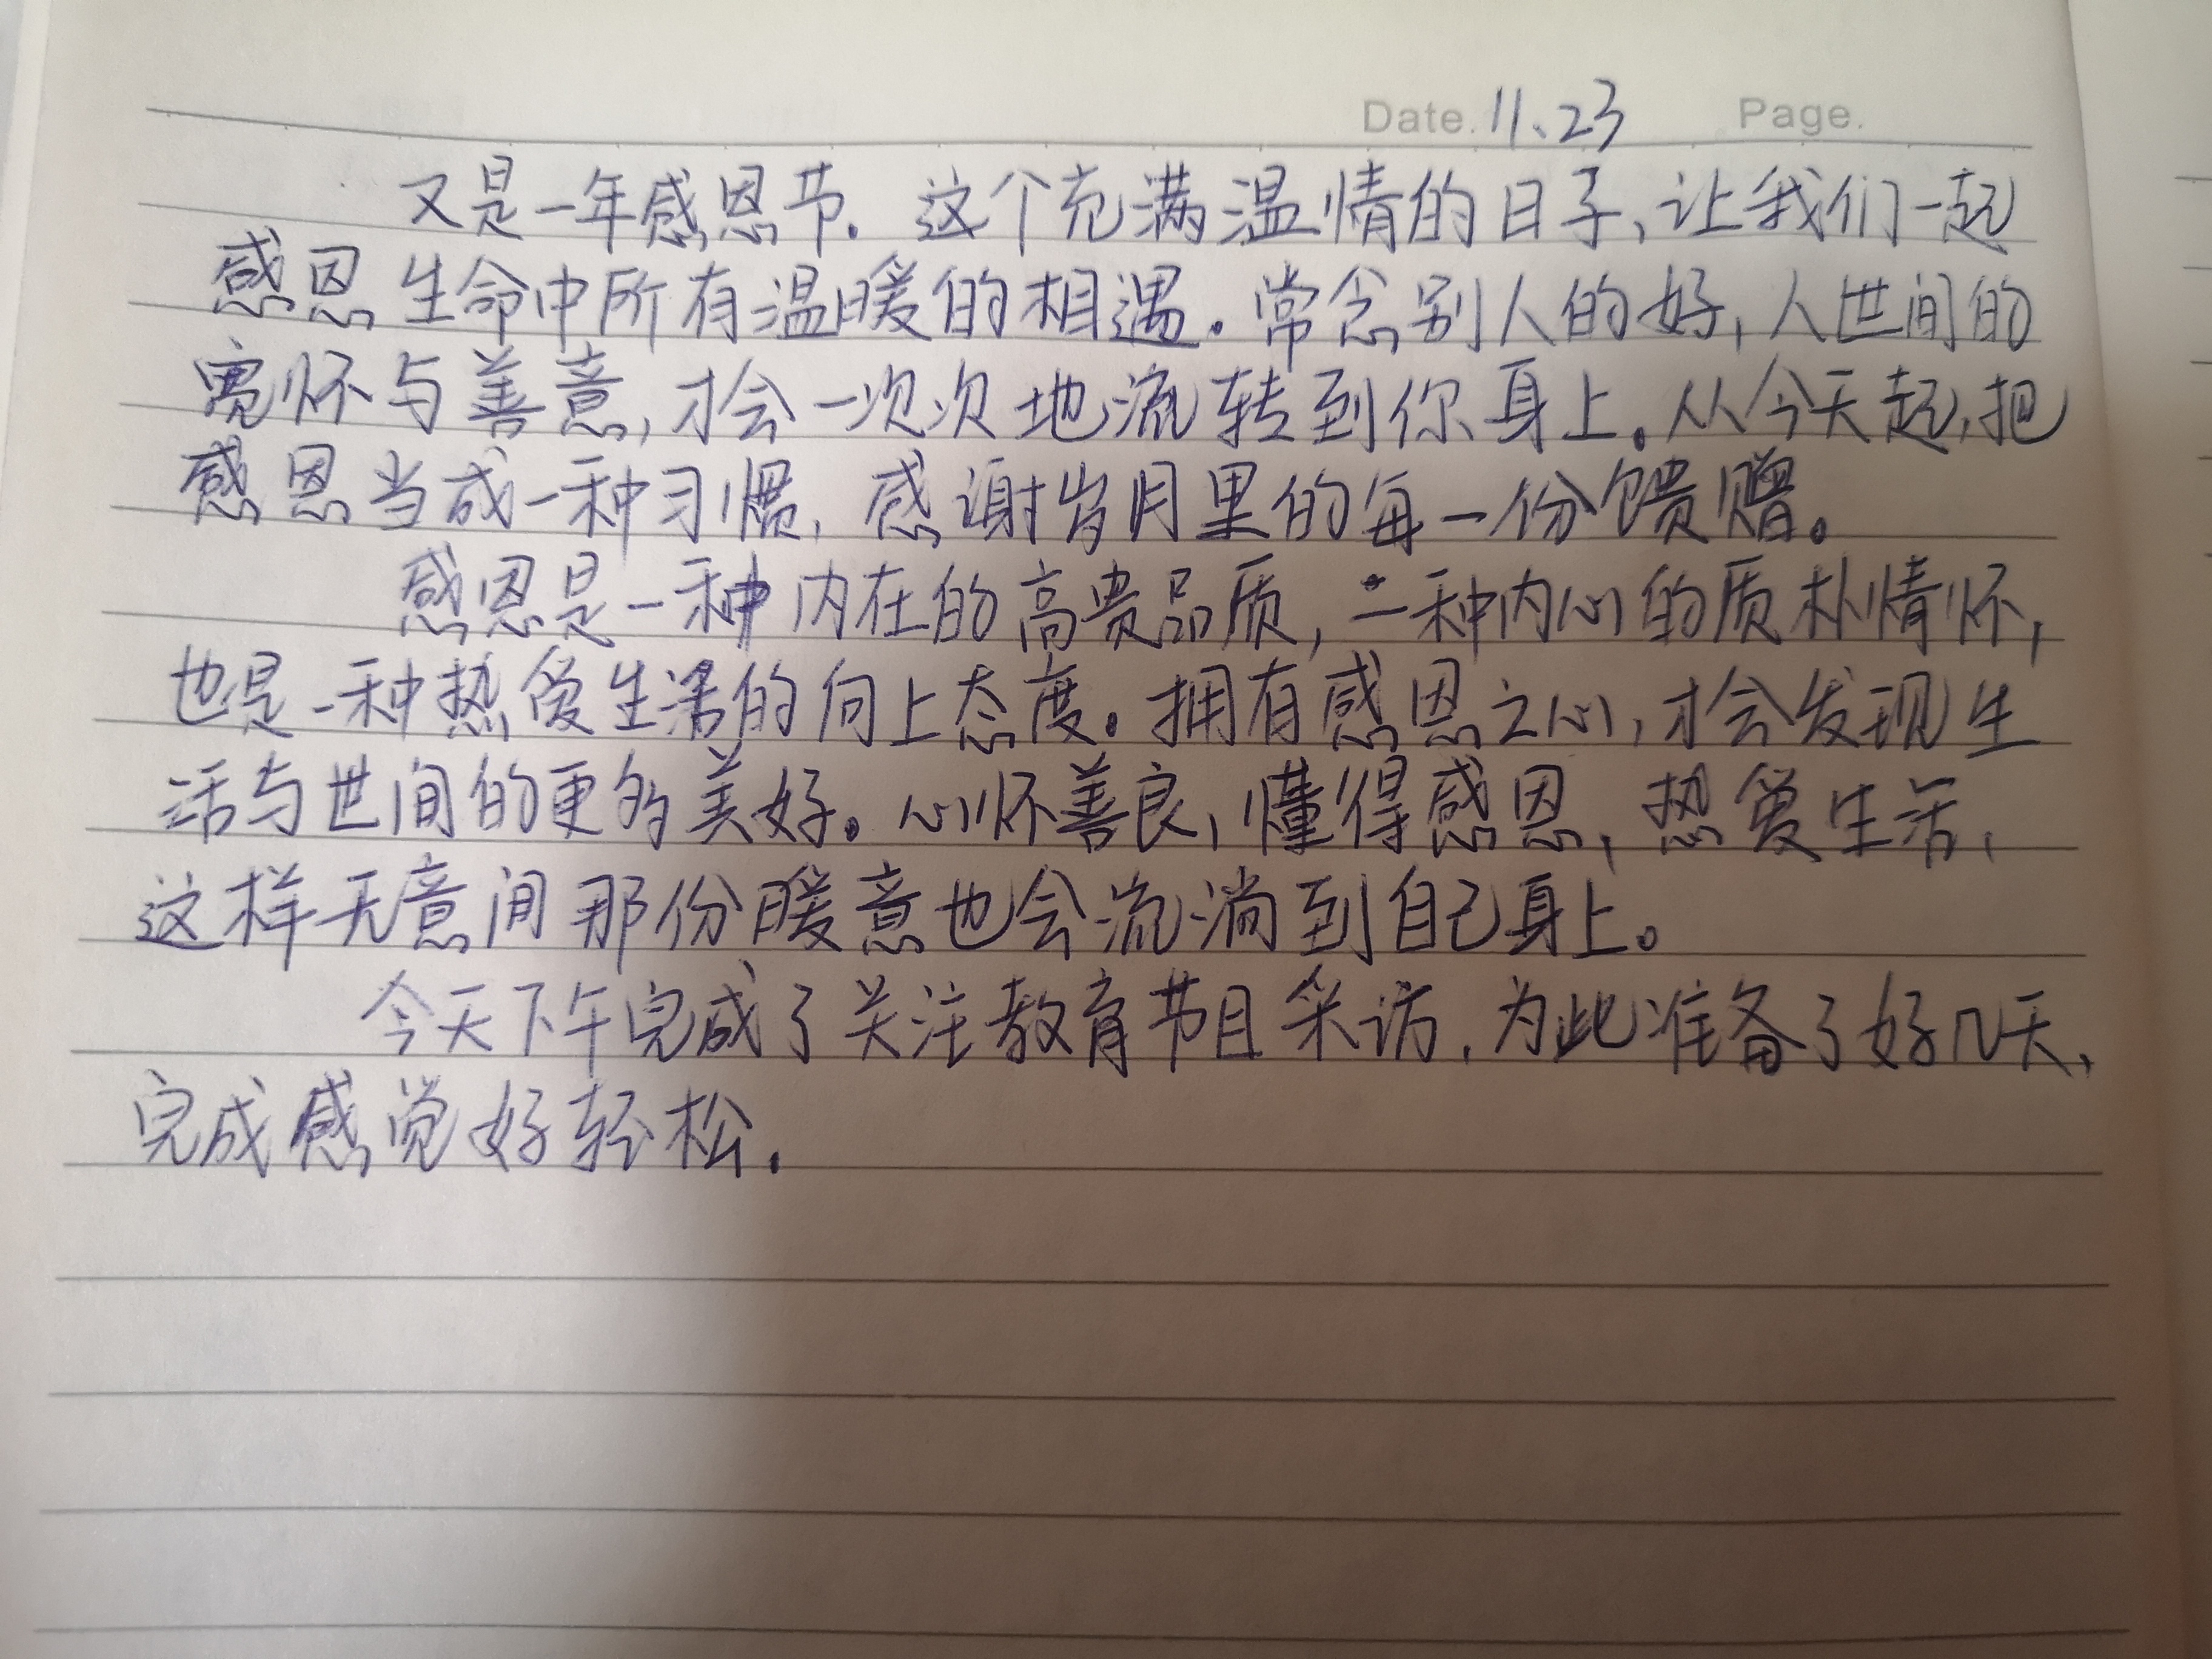 Date. 11、23 Page.
又是一年感恩节。这个充满温情的日子，让我们一起
感恩生命中所有温暖的相遇。常念别人的好，人世间的
宽怀与善意，才会一次次地流转到你身上。从今天起，把
感恩当成一种习惯，感谢岁月里的每一份馈赠。
感恩是一种内在的高贵品质，一种内心的质朴情怀，
也是一种热爱生活的向上态度。拥有感恩之心，才会发现生
活与世间的更多美好。心怀善良，懂得感恩，热爱生活，
这样无意间那份暖意也会流淌到自己身上。
今天下午完成了关注教育节目采访，为此准备了好几天，
完成感觉好轻松。